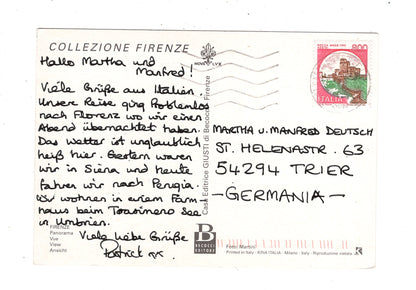 COLLEZIONE FIRENZE
NOVELUX
Hallo Martha und
Manfred!
Viele Grüße aus Italien.
Unsere Reise ging Problemlos
nach Florenz wo wir einen
Abend übernachtet haben.
Das Wetter ist unglaublich
heiß hier. Gestern waren
wir in Siena und heute
fahren wir nach Perugia.
Wir wohnen in einem Farm
haus beim Trasimeno See
in Umbrien.
Viele liebe Grüße
Patrick
FIRENZE
Panorama
Vue
View
Ansicht
Casa Editrice GIUSTI di Becocci - Firenze
B
BECOCCI
EDITORE
800
ITALIA
MARTHA U. MANFRED DEUTSCH
ST. HELENASTR. 63
54294 TRIER
-GERMANIA-
Foto: Martini
Printed in Italy - KINA ITALIA - Milano - Italy - Riproduzione vietata